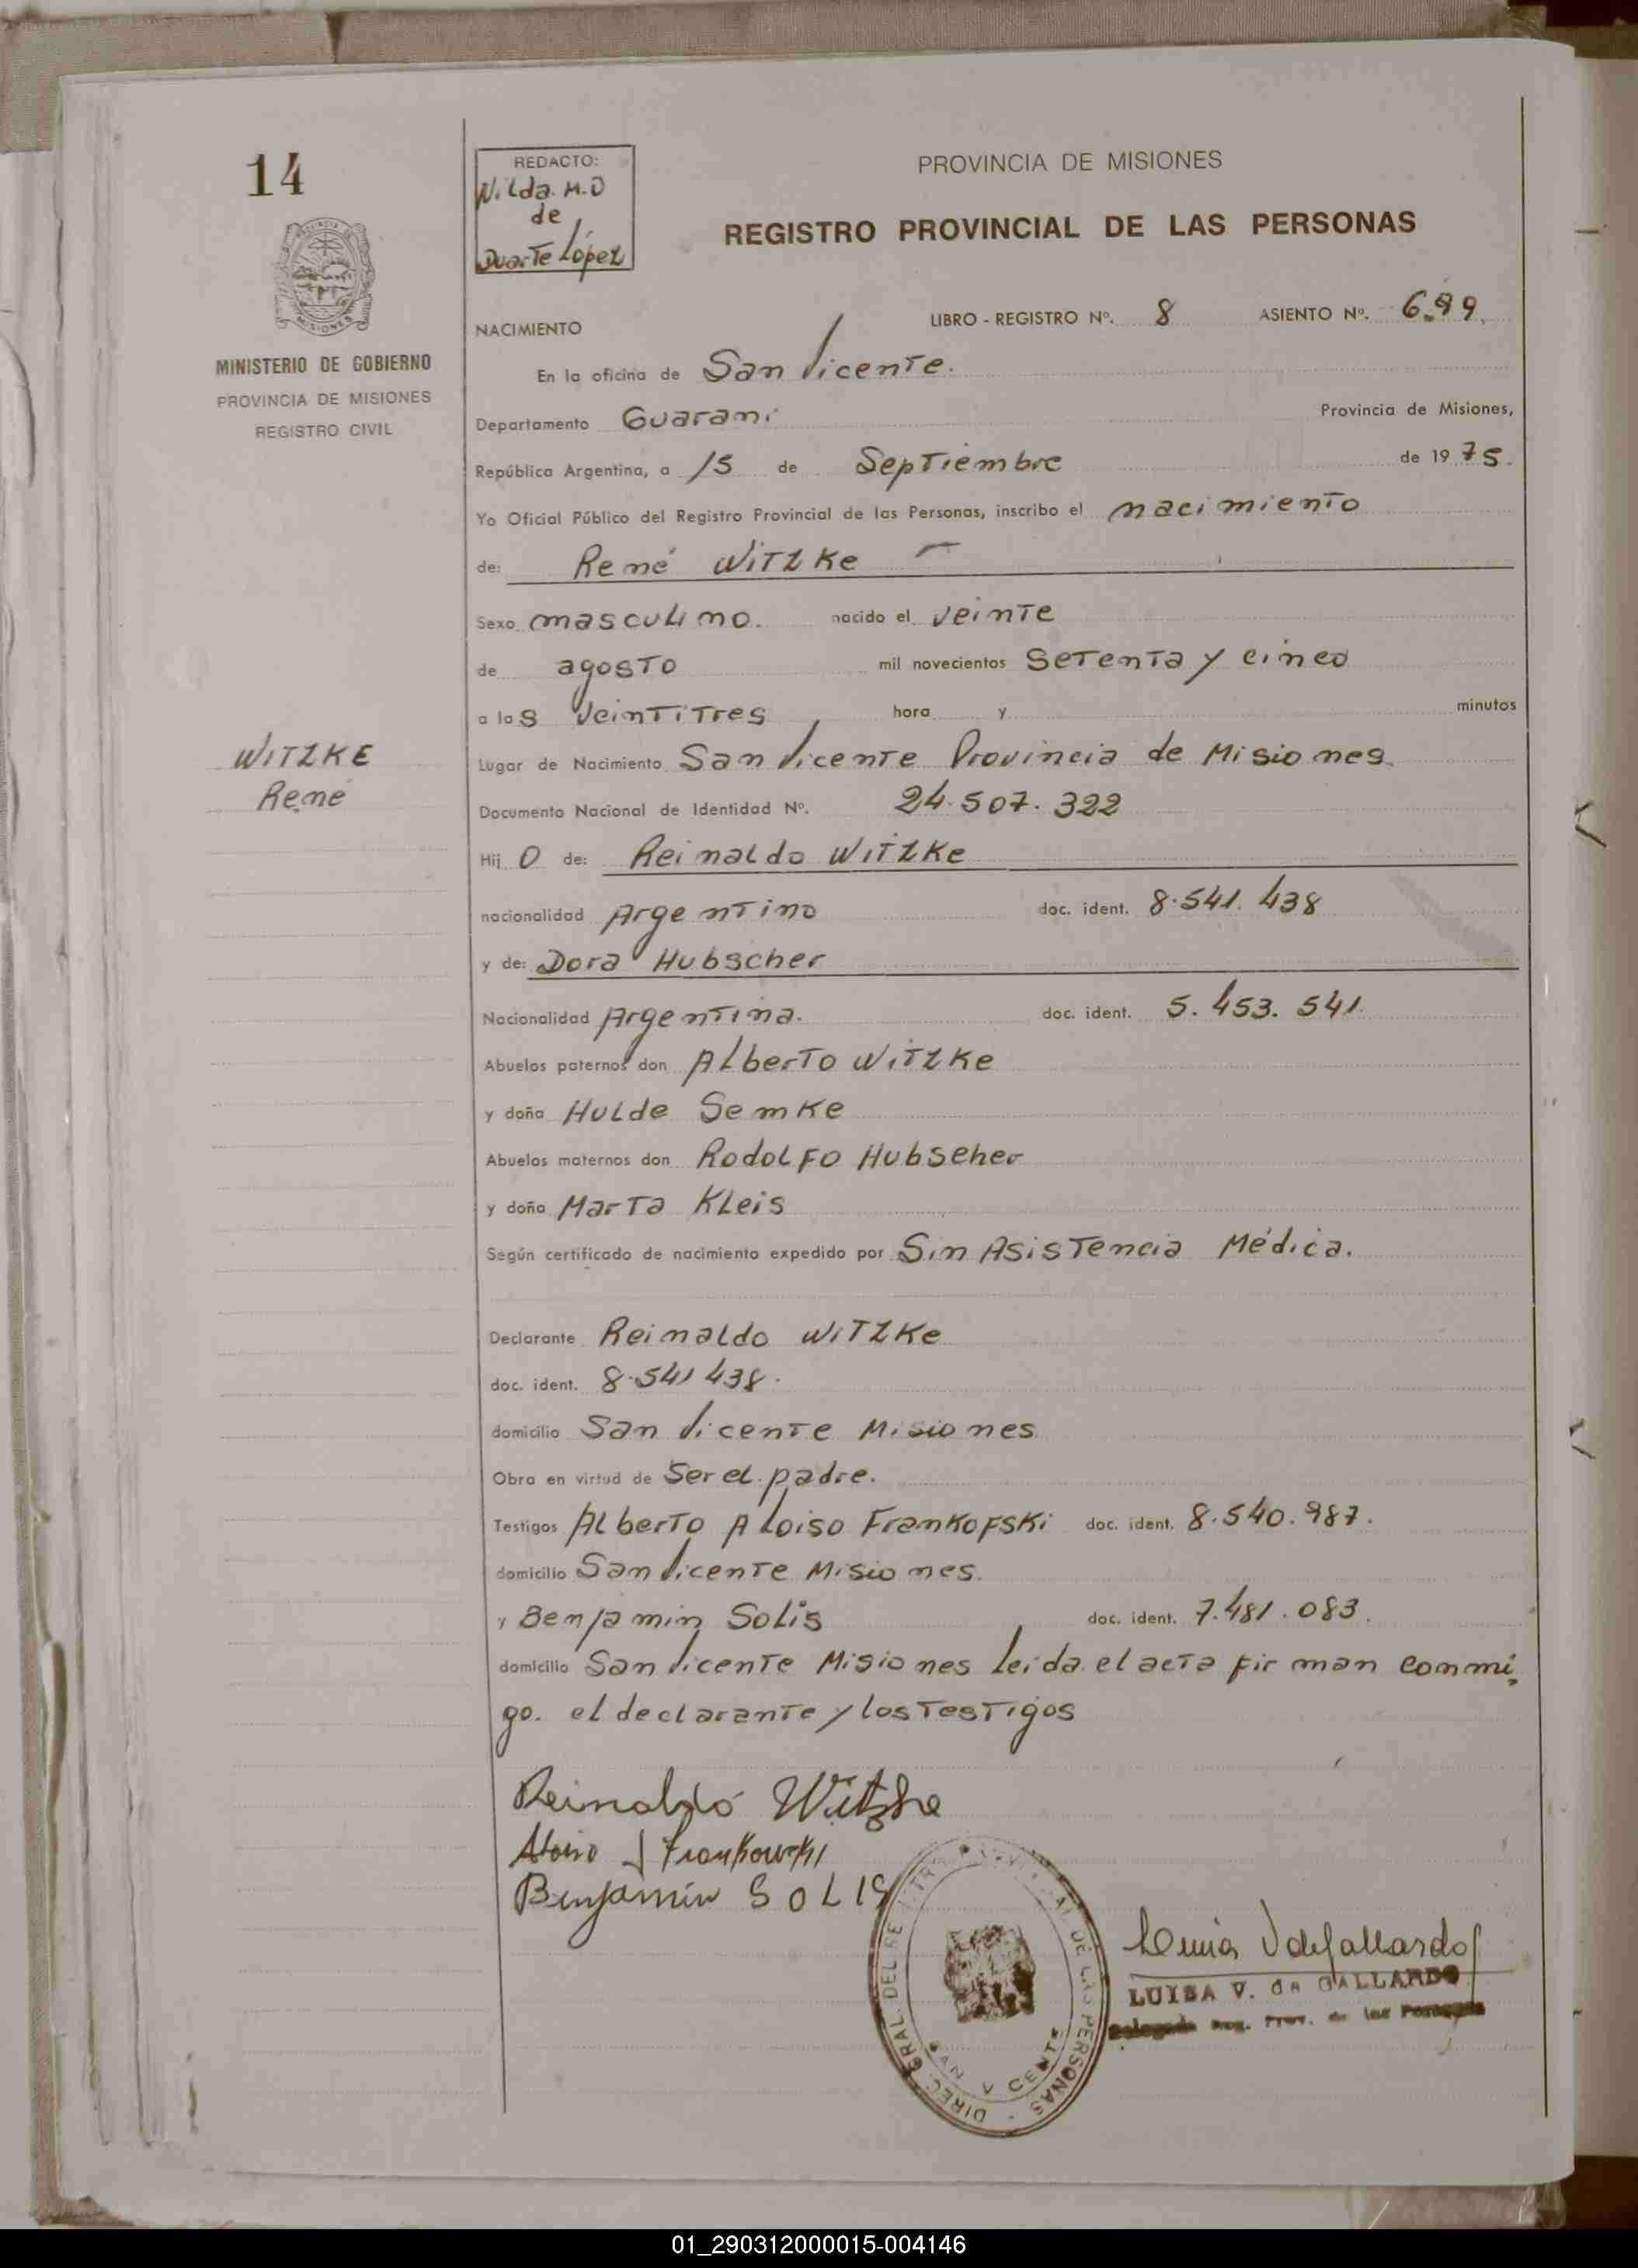 14
REDACTO:
Nilda. M.D
de
Duarte López
PROVINCIA DE MISIONES
REGISTRO PROVINCIAL DE LAS PERSONAS
MINISTERIO DE GOBIERNO
PROVINCIA DE MISIONES
REGISTRO CIVIL
NACIMIENTO LIBRO - REGISTRO Nº. 8 ASIENTO Nº. 699.
En la oficina de San Vicente.
Departamento Guarani Provincia de Misiones,
República Argentina, a 15 de Septiembre de 1975.
Yo Oficial Público del Registro Provincial de las Personas, inscribo el nacimiento
de: René Witzke
Sexo masculino. nacido el veinte
de agosto mil novecientos Setenta y cinco
a las veintitres hora y minutos
WITZKE
René
Lugar de Nacimiento San Vicente Provincia de Misiones.
Documento Nacional de Identidad Nº. 24.507.322
Hij o de: Reinaldo Witzke
nacionalidad Argentino doc. ident. 8.541.438
y de: Dora Hubscher
Nacionalidad Argentina. doc. ident. 5.453.541.
Abuelos paternos don Alberto Witzke
y doña Hulde Semke
Abuelos maternos don Rodolfo Hubscher
y doña Marta Kleis
Según certificado de nacimiento expedido por Sin Asistencia Médica.
Declarante Reinaldo Witzke
doc. ident. 8.541 438.
domicilio San Vicente Misiones
Obra en virtud de Ser el padre.
Testigos Alberto Aloiso Frankofski doc. ident. 8.540.987.
domicilio San Vicente Misiones.
y Benjamin Solis doc. ident. 7.481.083.
domicilio San Vicente Misiones leida el acta firman conmi
go. el declarante y los testigos
Reinaldo Witzke
Aloiso Frankowski
Benjamín SOLIS
DIREC. GRAL. DEL REGISTRO PROVINCIAL DE LAS PERSONAS
SAN VICENTE
Luisa V de Gallardo
LUISA V. DE GALLARDO
Delegada Reg. Prov. de las Personas
01_290312000015-004146